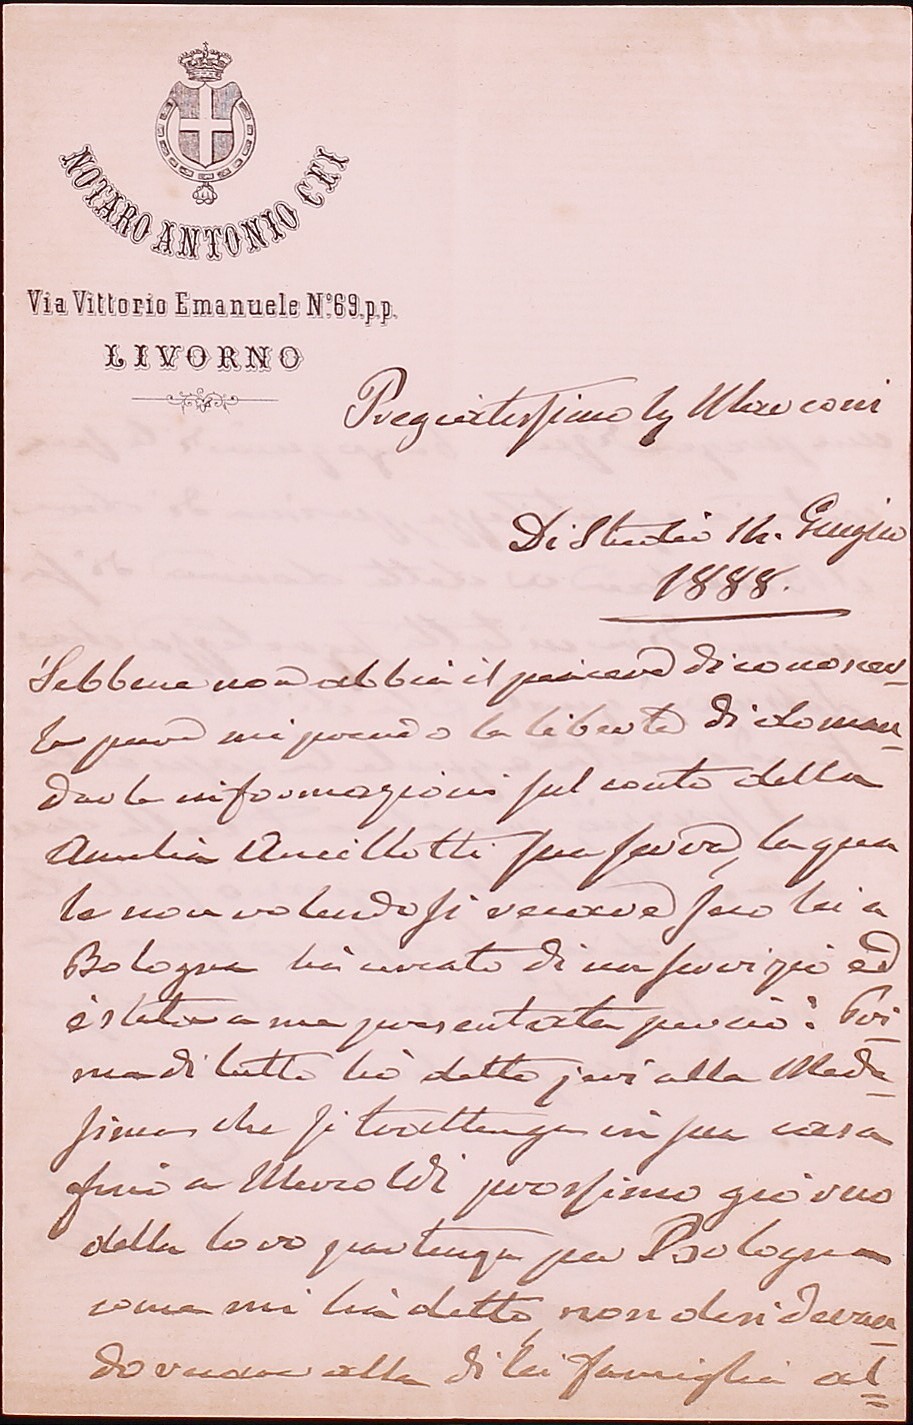 NOTARO ANTONIO CEI
Via Vittorio Emanuele N.º 69. p.p.
LIVORNO
Pregiatissimo Sig Marconi
Di Studio 14. Giugno
1888.
Sebbene non abbia il piacere di conoscer-
la pure mi prendo la libertà di doman-
darle informazioni sul conto della
Amelia Ancillotti sua serva, la qua
le non volendosi recare con lei a
Bologna ha cercato di un servizio ed
è stata a me presentata perciò: Pri-
ma di tutto ho detto jeri alla Mede-
sima che si trattenga in sua casa
fino a Mercoldi prossimo giorno
della loro partenza per Bologna
come mi ha detto, non desideran-
do recare alla di lei famiglia al-